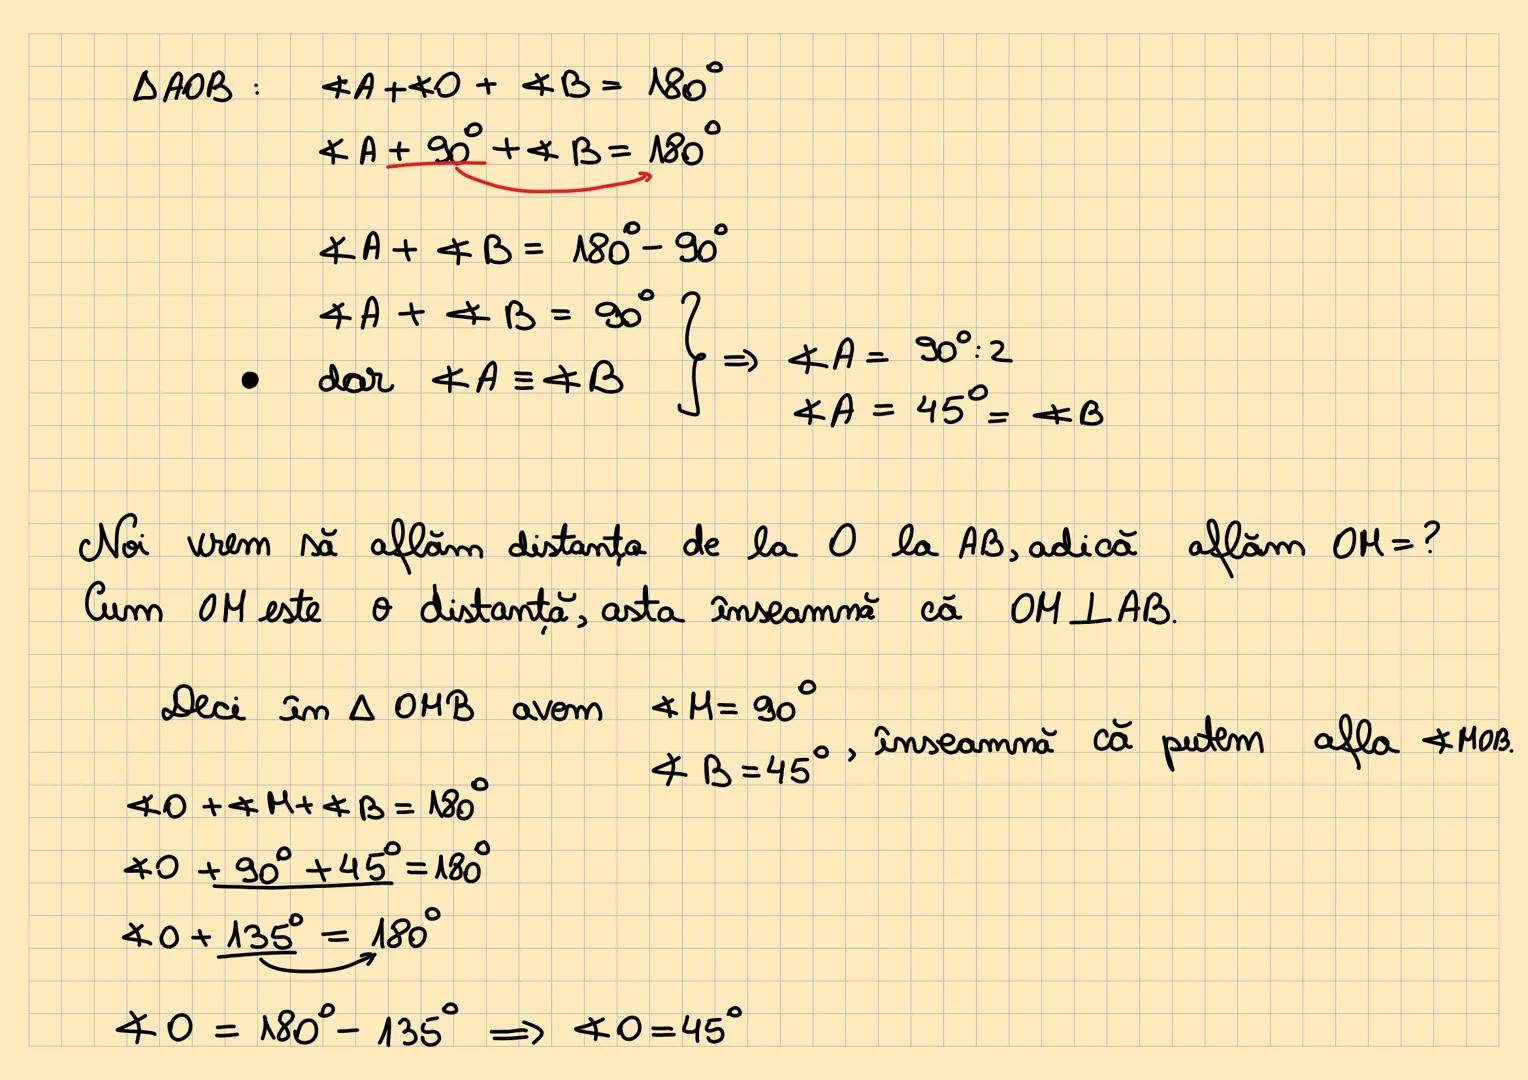 ∆AOB : ∢A+∢O + ∢B = 180°
∢A + 90° + ∢B = 180°
∢A + ∢B = 180° - 90°
∢A + ∢B = 90°
• dar ∢A ≡ ∢B
} ⇒ ∢A = 90°:2
∢A = 45° = ∢B
Noi vrem să aflăm distanța de la O la AB, adică aflăm OM=?
Cum OM este o distanță, asta înseamnă că OM ⊥ AB.
Deci în ∆ OMB avem ∢M = 90°
∢B = 45°, înseamnă că putem afla ∢MOB.
∢O + ∢M + ∢B = 180°
∢O + 90° + 45° = 180°
∢O + 135° = 180°
∢O = 180° - 135° ⇒ ∢O = 45°